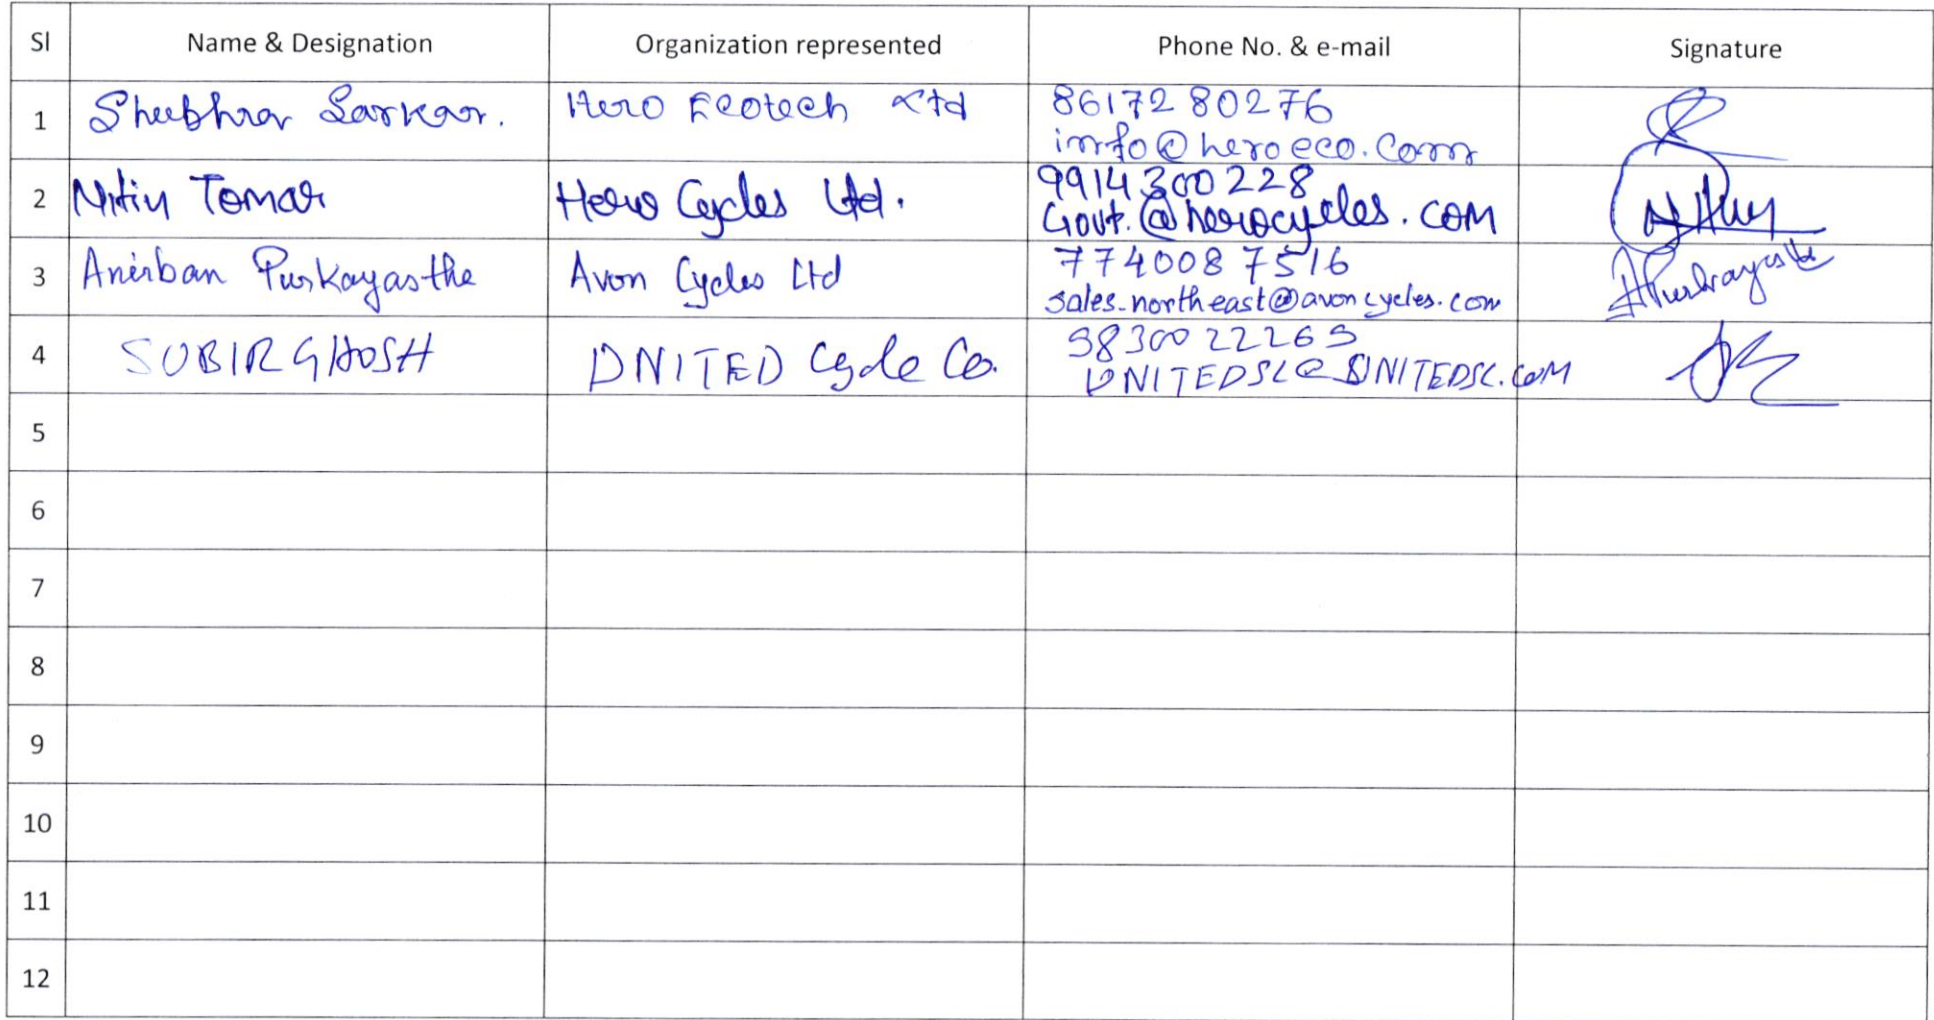 Sl Name & Designation Organization represented Phone No. & e-mail Signature
1 Shubhra Sarkar. Hero Ecotech Ltd 86172 80276
info@heroeco.com
2 Nitin Tomar Hero Cycles Ltd. 9914300228
Govt.@herocycles.com
3 Anirban Purkayastha Avon Cycles Ltd 7740087516
sales-northeast@avoncycles.com
4 SUBIR GHOSH UNITED Cycle Co. 9830022269
UNITEDSC@UNITEDSC.COM
5
6
7
8
9
10
11
12